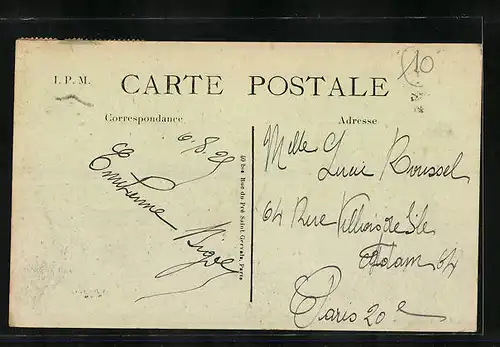 10
I. P. M.
CARTE POSTALE
Correspondance
Adresse
6.8.25
Melle Lucie Roussel
64 Rue Villiers de l'Isle
Adam 64
Paris 20e
40 bis Rue du Pré Saint Gervais, Paris